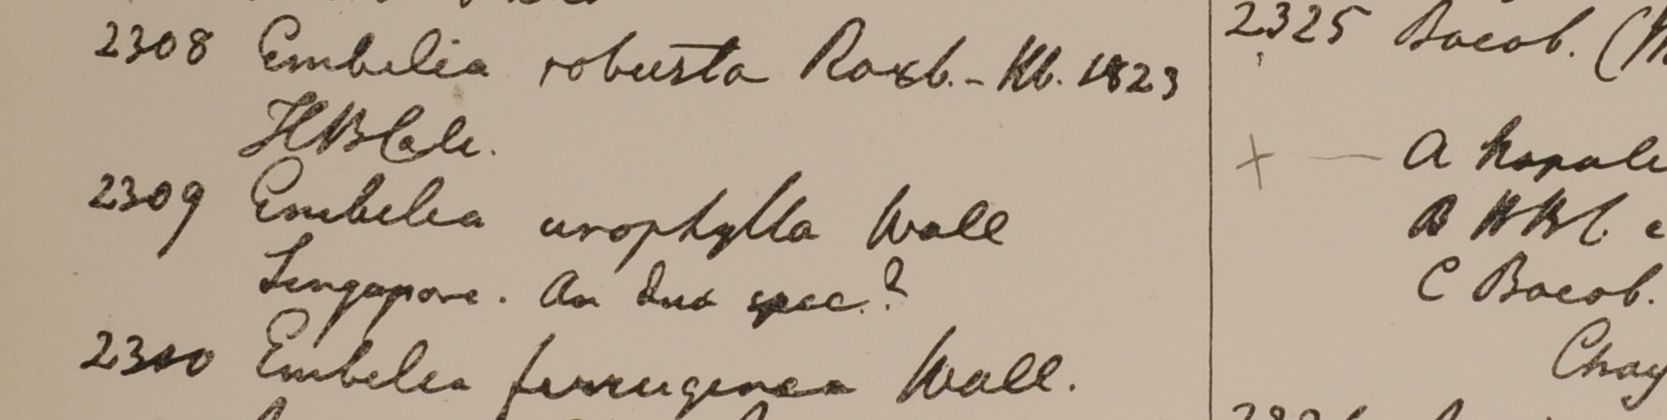 2308 Embelia robusta Roxb. - Kb. 1823
HBCalc.
2309 Embelia urophylla Wall
Singapore. An dua spec.?
2310 Embelia ferruginea Wall.
2325 Bocob.
+ — A
B HBC
C Bocob.